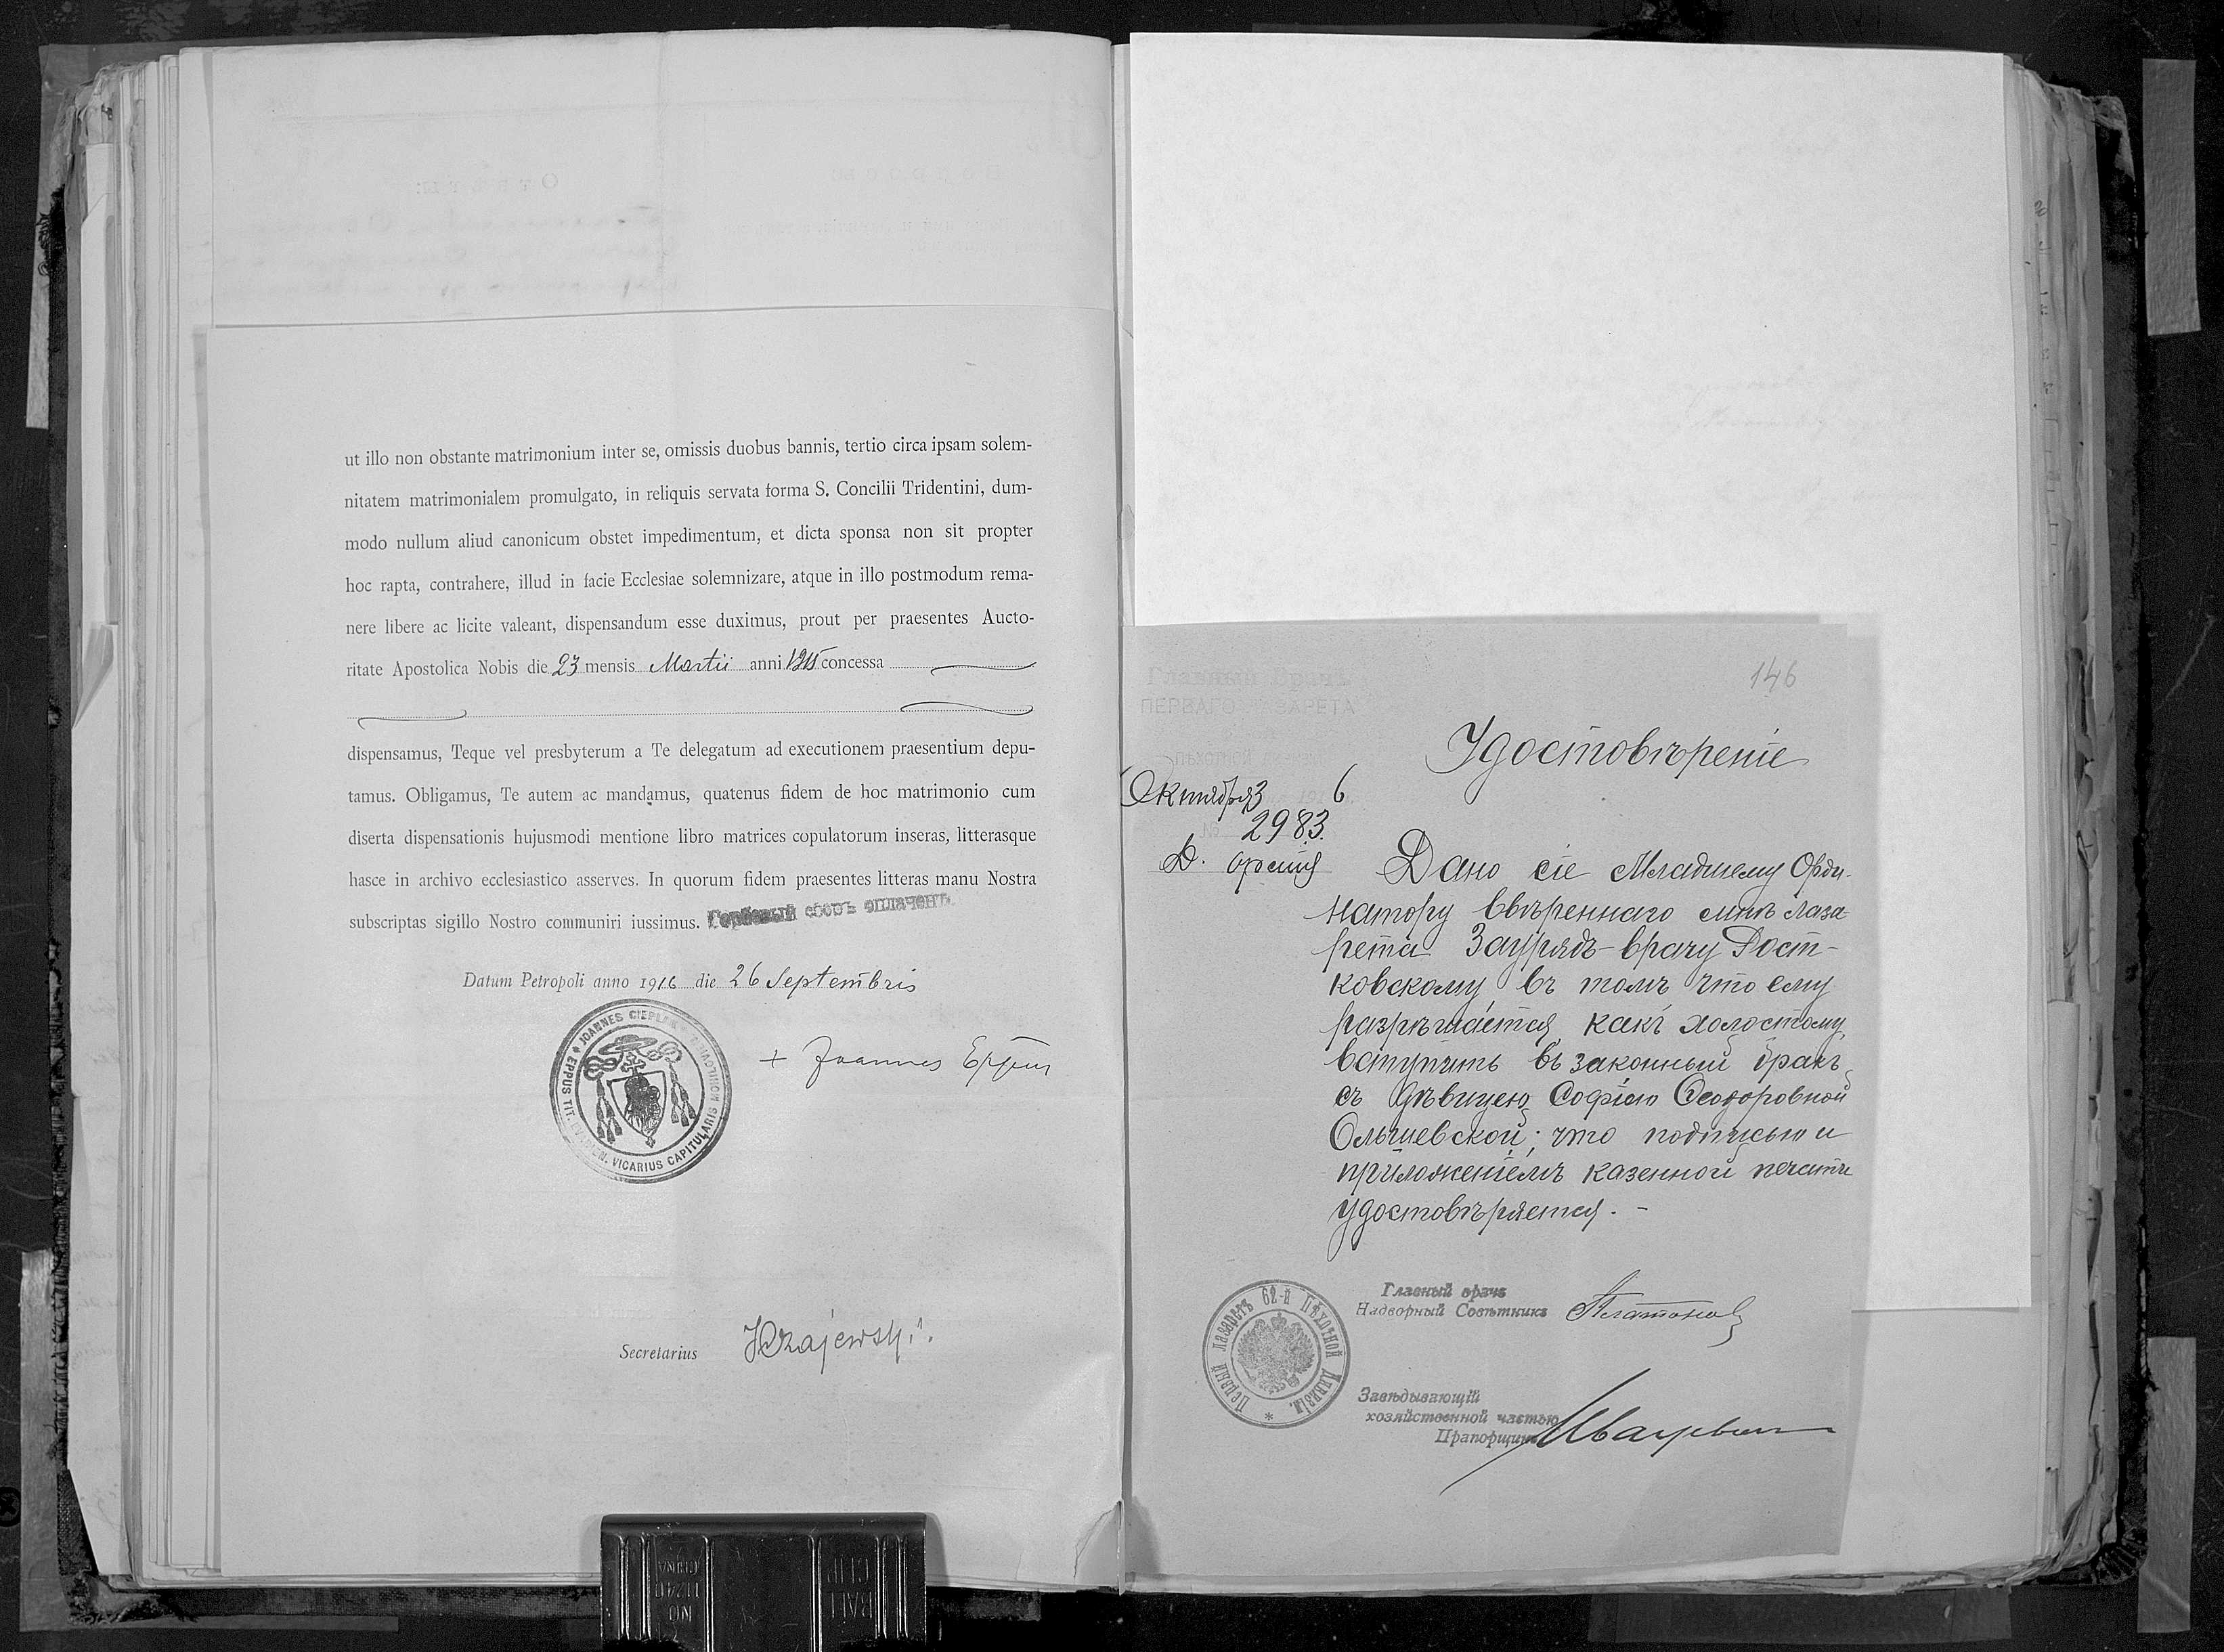 ut illo non obstante matrimonium inter se, omissis duobus bannis, tertio circa ipsam solem-
nitatem matrimonialem promulgato, in reliquis servata forma S. Concilii Tridentini, dum-
modo nullum aliud canonicum obstet impedimentum, et dicta sponsa non sit propter
hoc rapta, contrahere, illud in facie Ecclesiae solemnizare, atque in illo postmodum rema-
nere libere ac licite valeant, dispensandum esse duximus, prout per praesentes Aucto-
ritate Apostolica Nobis die 23 mensis Martii anni 1915 concessa
dispensamus, Teque vel presbyterum a Te delegatum ad executionem praesentium depu-
tamus. Obligamus, Te autem ac mandamus, quatenus fidem de hoc matrimonio cum
diserta dispensationis hujusmodi mentione libro matrices copulatorum inseras, litterasque
hasce in archivo ecclesiastico asserves. In quorum fidem praesentes litteras manu Nostra
subscriptas sigillo Nostro communiri iussimus. Гербовый сборъ оплаченъ.
Datum Petropoli anno 1916 die 26 Septembris
JOANNES CIEPLAK
EPPUS TIT. VICARIUS CAPITULARIS MOHILOVIEN.
+ Joannes Eppus
Secretarius Krajewski.
146
Главный Врачъ
ПЕРВАГО ЛАЗАРЕТА
Удостовѣреніе
Октября 3 6
№ 2983.
Дано сіе Младшему Орди-
натору ввѣреннаго мнѣ лаза-
рета Заурядъ-врачу Рост-
ковскому въ томъ что ему
разрѣшается, какъ холостому,
вступить въ законный бракъ
съ дѣвицею Софіею Ѳеодоровной
Ольшевской; что подписью и
приложеніемъ казенной печати
удостовѣряется. -
Первый лазаретъ 62-й Пѣхотной Дивизіи.
Главный врачъ
Надворный Совѣтникъ Платоновъ
Завѣдывающій
хозяйственной частью
Прапорщикъ